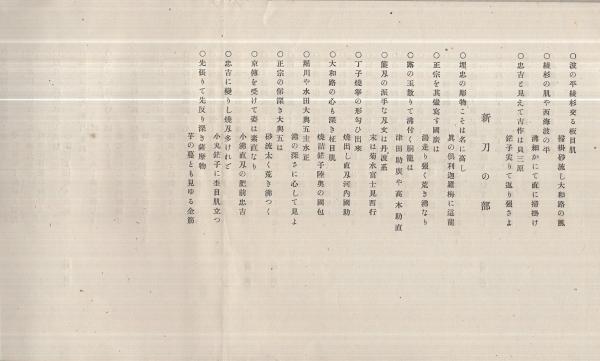 ○波の平綾杉交る板目肌
掃掛砂流し大和路の風
○綾杉の肌や西海波の平
沸細かにて直に掃掛け
○忠吉と見えて古作は貝三原
鋩子尖りて返り強さよ
新刀の部
○埋忠の彫物こそは名に高し
其の倶利迦羅梅に這龍
○正宗を其儘寫す國廣は
湯走り強く荒き沸なり
○露の玉散りて沸付く濤瀾は
津田助廣や高木助直
○籠刄の派手な刄文は丹波系
末は菊水富士見西行
○丁子燒拳の形匂ひ出來
燒出し直刄河内國助
○大和路の心も深き柾目肌
燒詰鋩子陸奥の國包
○堀川や水田大與五主水正
沸の深さに心して見よ
○正宗の俤深き大與五は
砂流太く荒き沸つく
○京傳を受けて姿は素直なり
小沸直刄の肥前忠吉
○忠吉に變りし燒刄多けれど
小丸鋩子に杢目肌立つ
○先張りて先反り深き薩摩物
芋の蔓とも見ゆる金筋